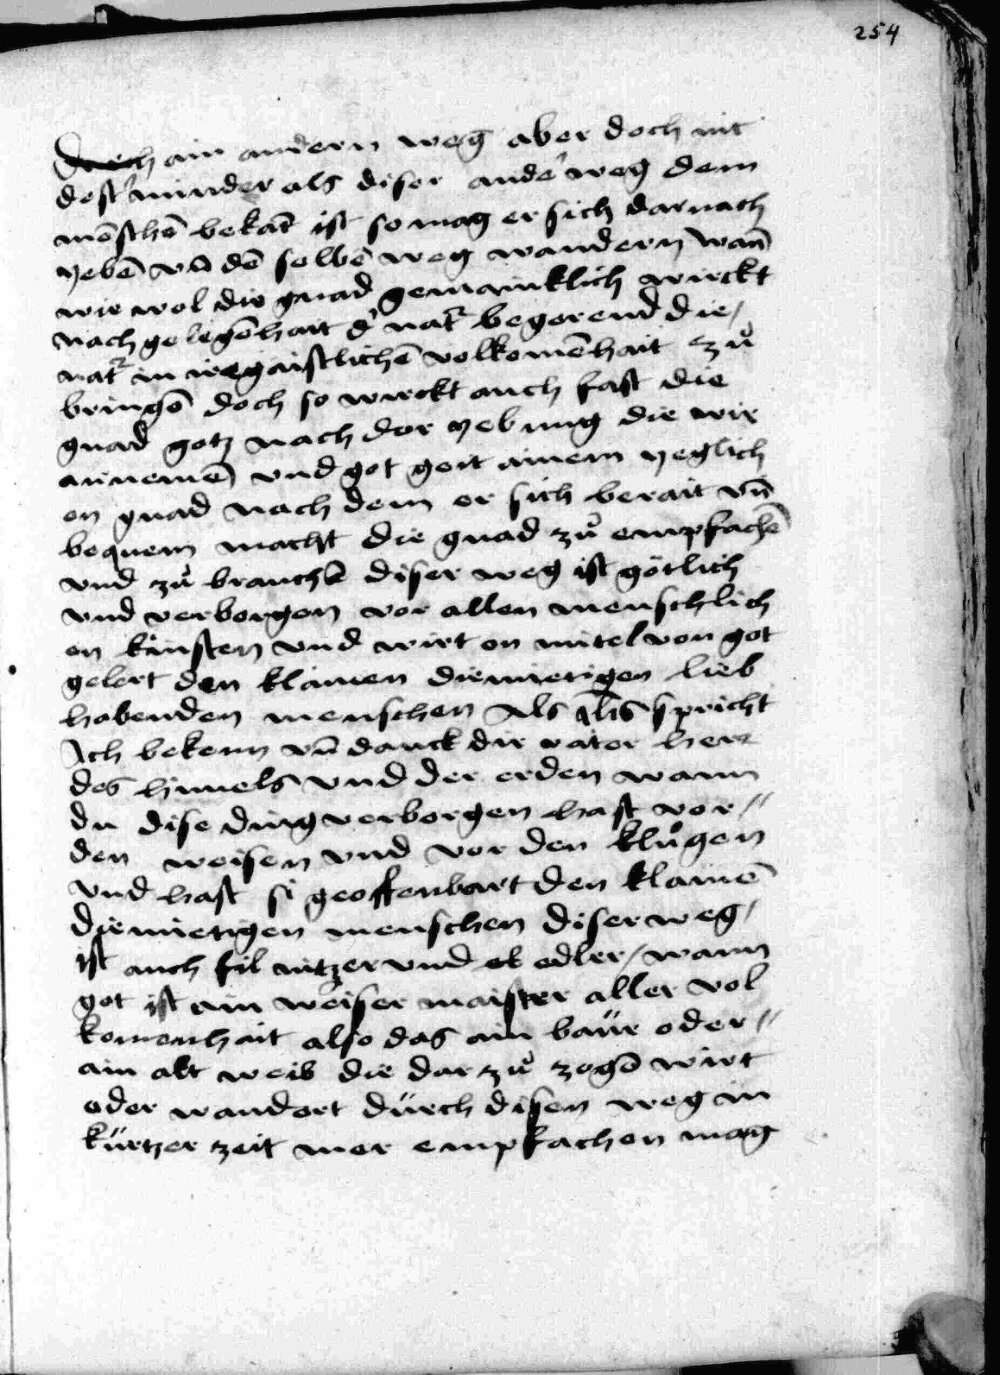 254
Durch ain andern weg aber doch nit
dest' minder als diser ande' weg dem
mēschē bekāt ist so mag er sich darnach
yebē vn̄ dē selbē weg wandern wan̄
wie wol die gnad gemainklich wirckt
nach gelegēhait d' nat' begerend die /
nat' in ire gaistlichē volkomēhait zů
bringē doch so wirckt auch fast die
gnad gotz nach der yebung die wir
an nemē vnd got geit ainem yeglich
en gnad nach dem er sich berait vn̄
bequem macht die gnad zů empfachē
vnd zů brauchē diser weg ist götlich
vnd verborgen vor allen menschlich
en künsten vnd wirt on mitel von got
gelert den klainen diemietigen lieb
habenden menschen Als xp̄s spricht
Ich bekenn vn̄ danck dir vater herr
des himels vnd der erden wann
du dise ding verborgen hast vor //
den weisen vnd vor den klůgen
vnd hast si geoffenbart den klainē
diemietigen menschen diser weg /
ist auch fil nitzer vnd edler / wann
got ist ain weiser maister aller vol
komenhait also das ain baür oder //
ain alt weib die dar zů zogē wirt
oder wandert dürch disen weg in
kürtzer zeit mer empfachen mag